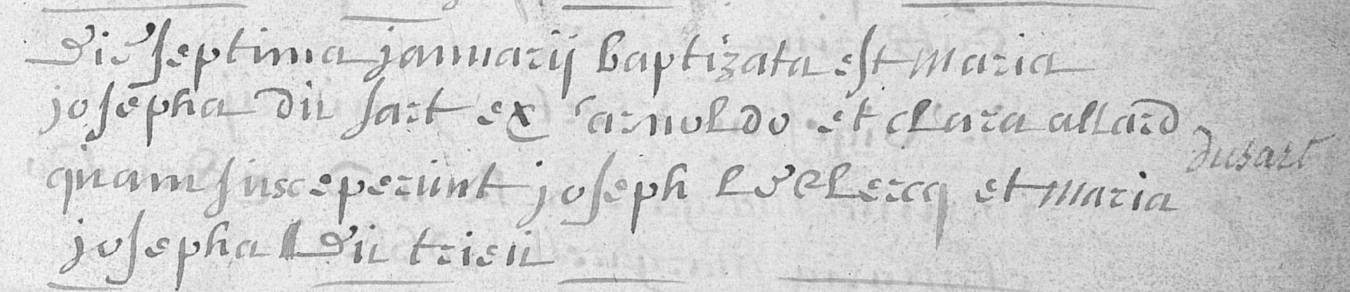 Die septima januarij baptizata est Maria
josepha du sart ex arnoldo et clara allard
dusart
quam susceperunt joseph le clercq et Maria
josepha du trieu